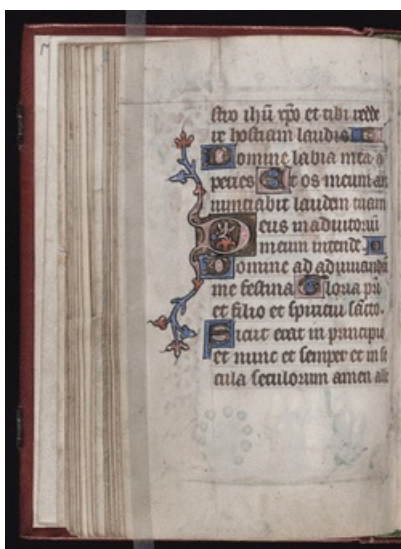 stro ihū xpo et tibi redde
re hostiam laudis
Domine labia mea a
peries Et os meum an
nunciabit laudem tuam
Deus in adiutoriū
meum intende
Domine ad adiuuandū
me festina Gloria pri
et filio et spiritui sācto.
Sicut erat in principio
et nunc et semper et in se
cula seculorum amen alle